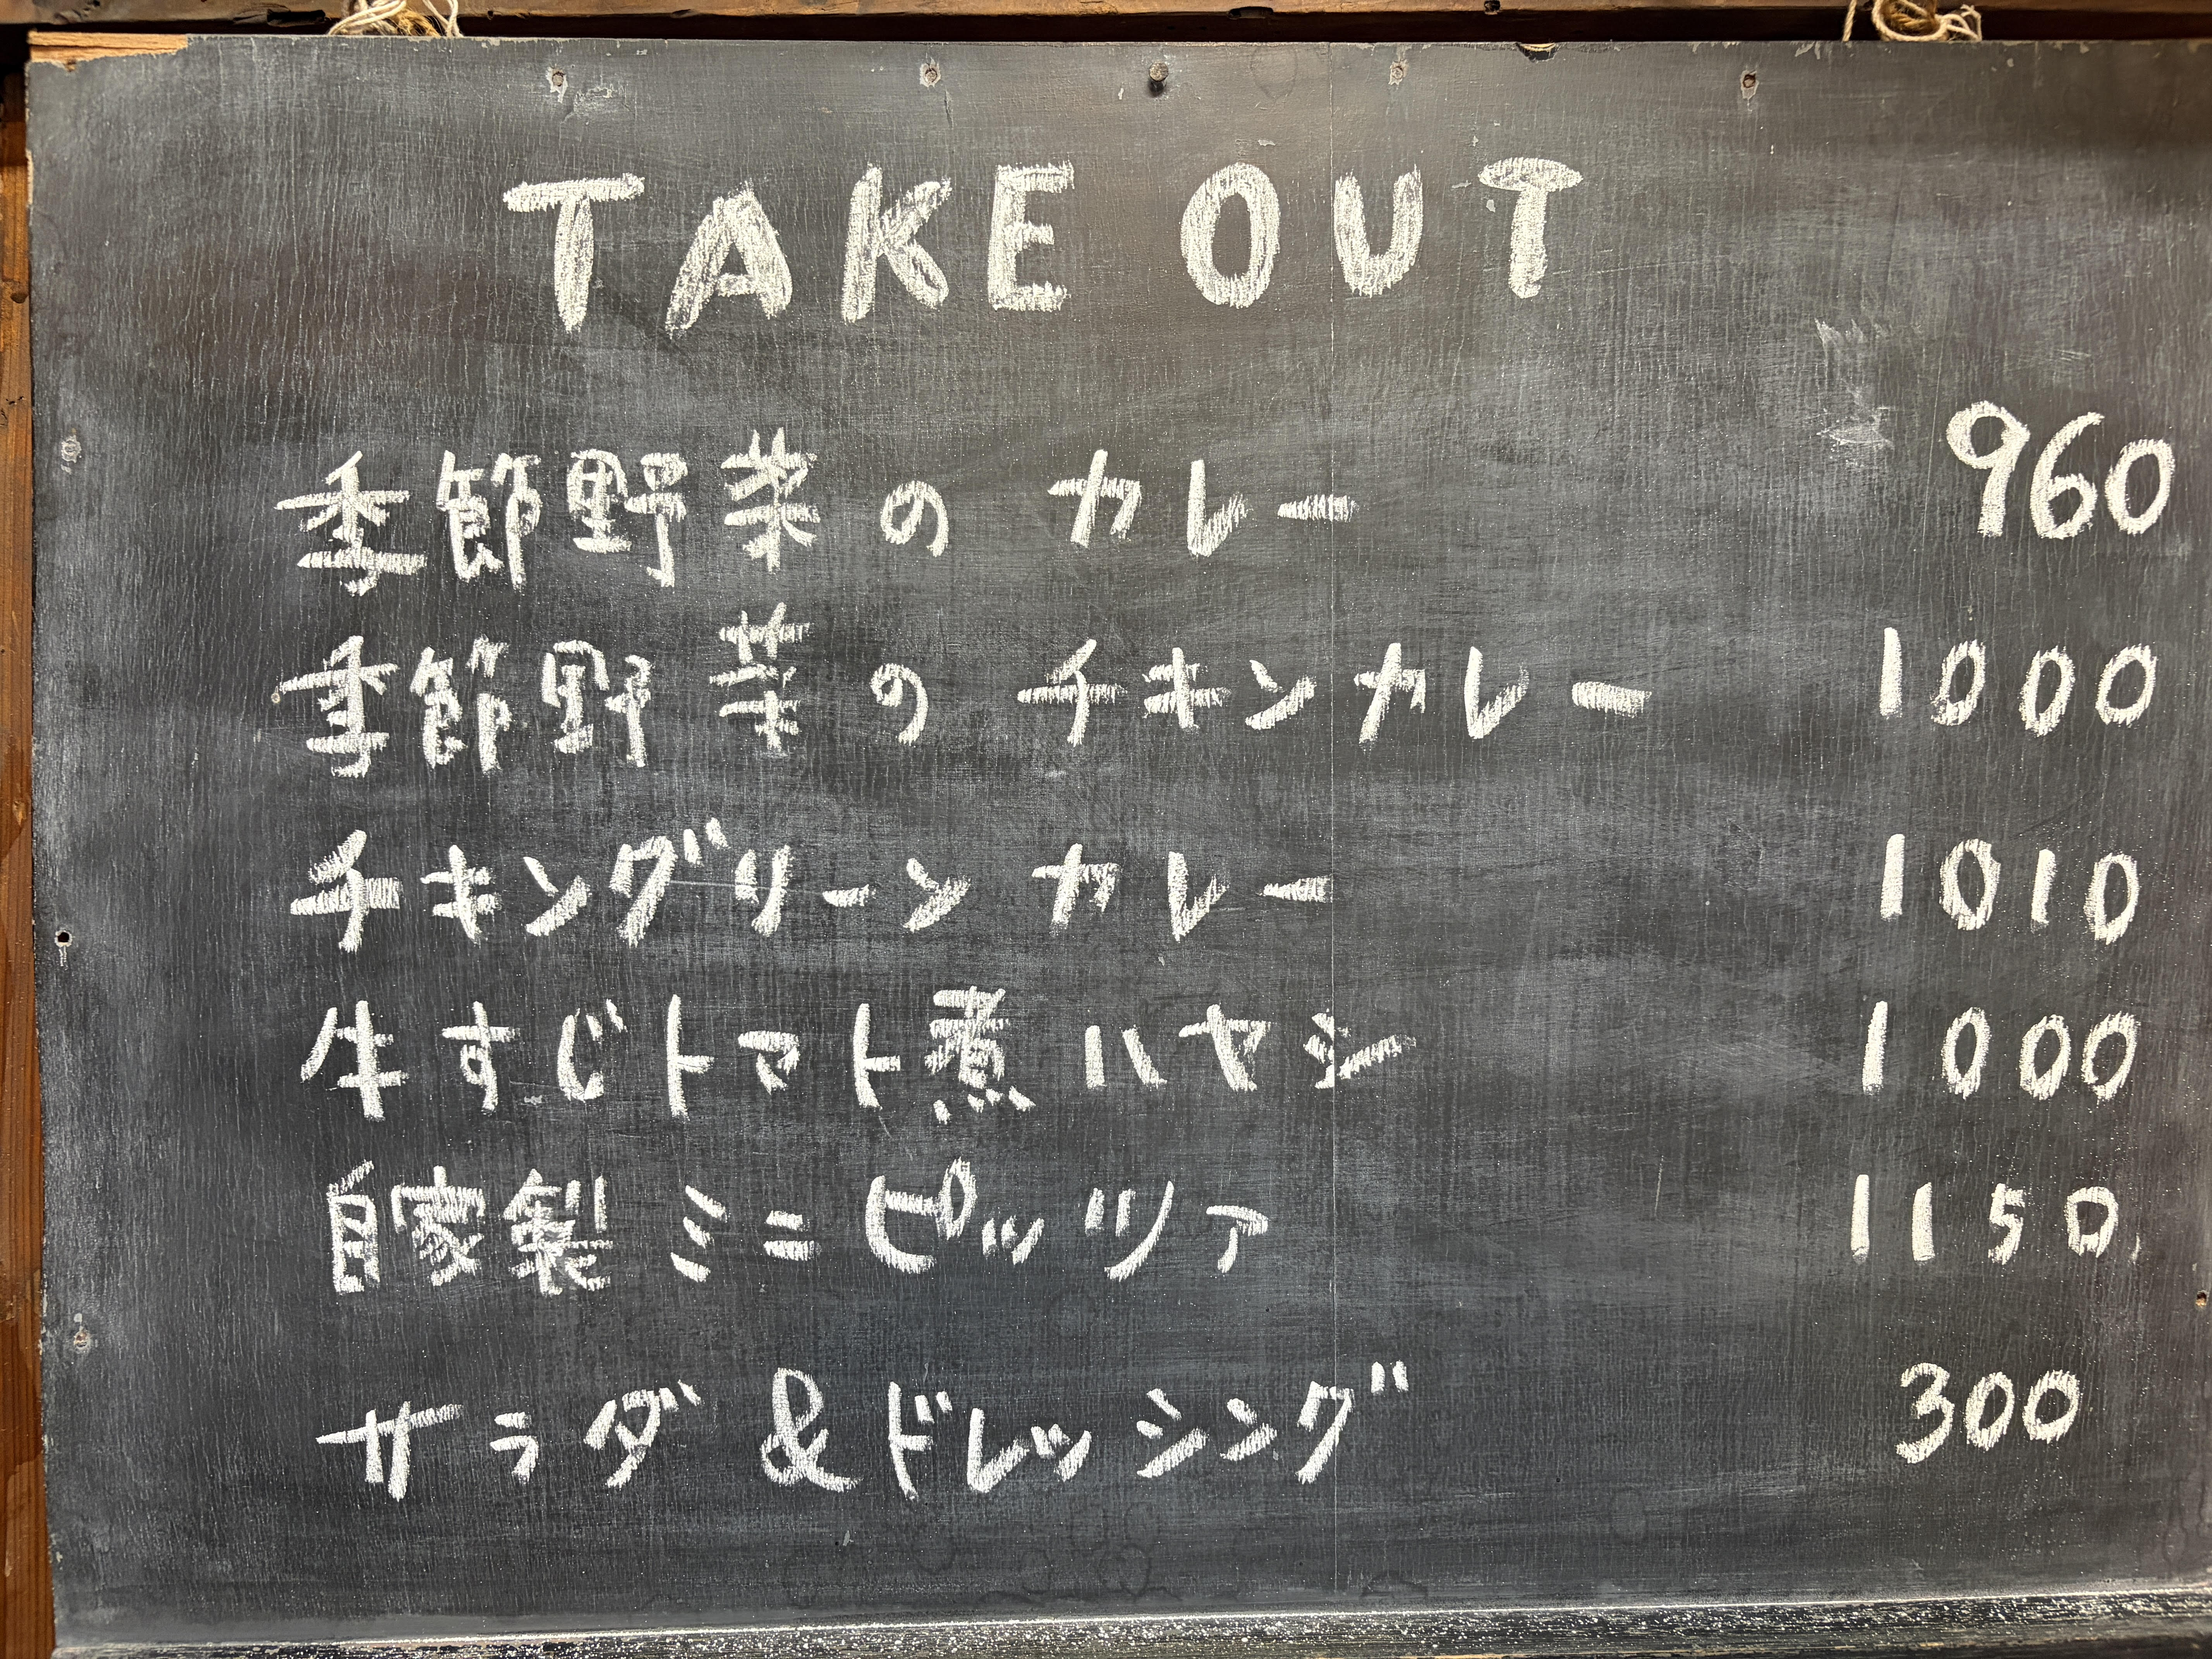 TAKE OUT
季節野菜の カレー 960
季節野菜の チキンカレー 1000
チキングリーン カレー 1010
牛すじトマト煮 ハヤシ 1000
自家製 ミニ ピッツァ 1150
サラダ & ドレッシング 300